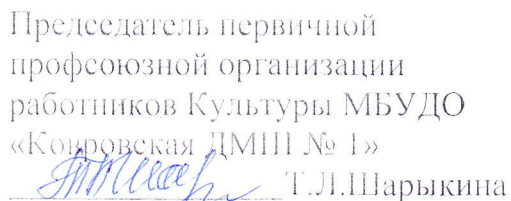 Председатель первичной
профсоюзной организации
работников Культуры МБУДО
«Ковровская ДМШ № 1»
Т.Л.Шарыкина